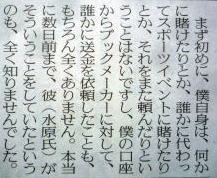 まず初めに、僕自身は、何か
に賭けたりとか、誰かに代わっ
てスポーツイベントに賭けたり
とか、それをまた頼んだりとい
うことはないですし、僕の口座
からブックメーカーに対して、
誰かに送金を依頼したことも、
もちろん全くありません。本当
に数日前まで、彼（水原氏）が
そういうことをしていたという
のも、全く知りませんでした。